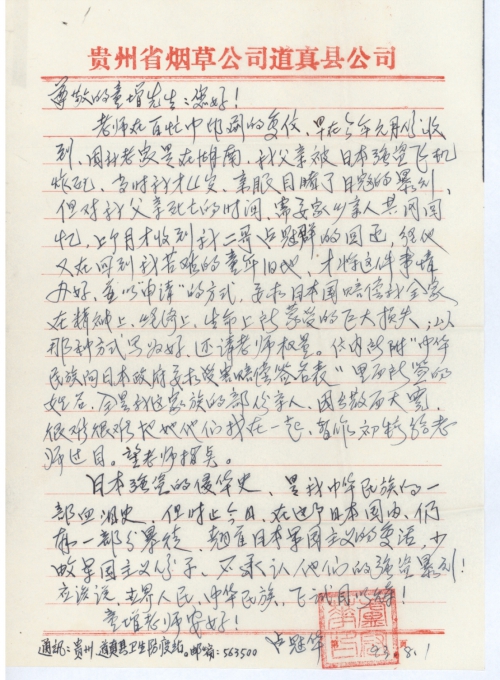 贵州省烟草公司道真县公司
尊敬的童增先生:您好!
老师在百忙中印刷的复信,早在今年元月份收
到,因我老家是在湖南,我父亲被日本强盗飞机
炸死,当时我才4岁,亲眼目睹了日寇的暴行,
但对我父亲死亡的时间,需要家乡亲人共同回
忆,上个月才收到我二哥占魁群的回函,经他
又在回到我苦难的童年旧地,才将这件事情
办好,并以"申请"的方式,要求日本国赔偿我全家
在精神上、经济上、生命上所蒙受的巨大损失;以
那种方式写为好,还请老师权量。信内所附"中华
民族向日本政府要求受害赔偿签名表"里面所签的
姓名,全是我这家族的部份亲人,因分散面大宽,
很难很难地把他们找在一起,暂作初稿给老
师过目。望老师指点。
日本强盗的侵华史,是我中华民族的一
部血泪史,但时止今日,在这个日本国内,仍
有一部分暴徒,想着日本军国主义的复活,少
数军国主义分子,不承认他们的强盗暴行!
应该说:世界人民、中华民族,飞拭目以待!
童增老师安好!
占魁华
93.8.1
通讯:贵州.道真县卫生防疫站.邮编:563500